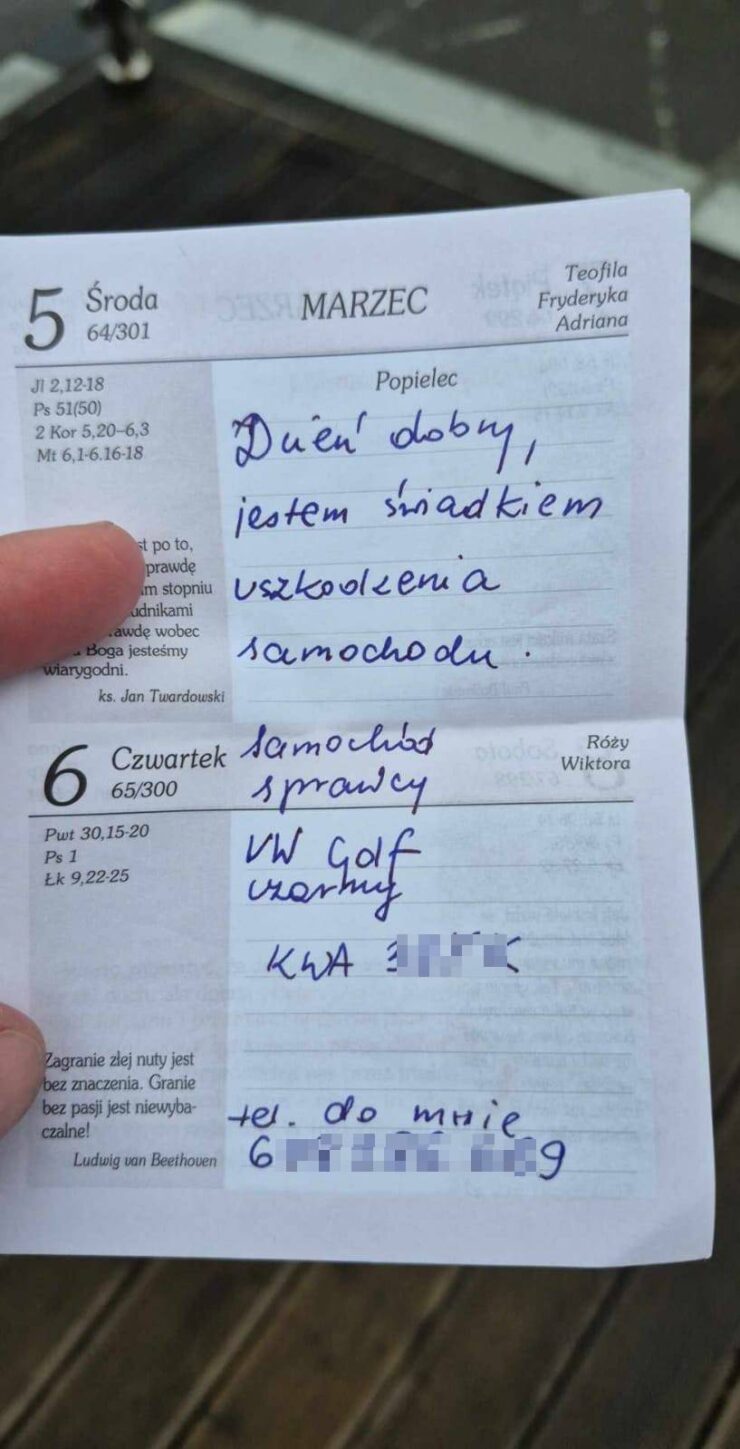 5 Środa
64/301
MARZEC
Teofila
Fryderyka
Adriana
Jl 2,12-18
Ps 51(50)
2 Kor 5,20–6,3
Mt 6,1-6.16-18
Popielec
Dzień dobry,
jestem świadkiem
uszkodzenia
samochodu.
st po to,
prawdę
m stopniu
udnikami
awdę wobec
Boga jesteśmy
wiarygodni.
ks. Jan Twardowski
6 Czwartek
65/300
samochód
sprawcy
Róży
Wiktora
Pwt 30,15-20
Ps 1
Łk 9,22-25
VW Golf
czarny
KWA
Zagranie złej nuty jest
bez znaczenia. Granie
bez pasji jest niewyba-
czalne!
Ludwig van Beethoven
tel. do mnie
6 9